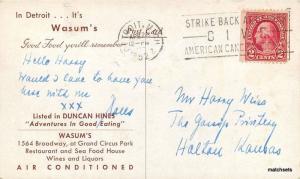 In Detroit . . . It's
Wasum's
Good Food you'll remember
DETROIT, MICH
1952
STRIKE BACK AT
AMERICAN CAN
2 CENTS 2
Hello Harry
Would I love to have you
here with me
xxx
Listed in DUNCAN HINES
"Adventures In Good Eating"
WASUM'S
1564 Broadway, at Grand Circus Park
Restaurant and Sea Food House
Wines and Liquors
AIR CONDITIONED
Mr Harry Wins
The Printery
Holton Kansas
markjets